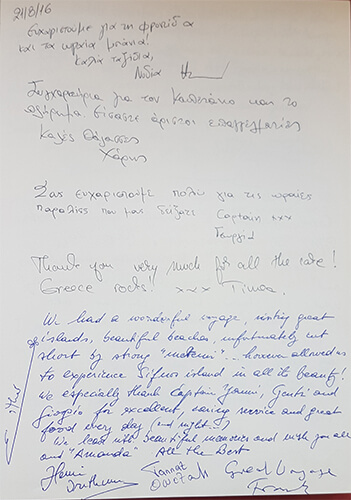 21/8/16
Ευχαριστούμε για τη φροντίδα
και τα ωραία μπάνια!
Καλά ταξίδια,
Λυδία
Συγχαρητήρια για τον καπετάνιο και το
πλήρωμα. Είσαστε άριστοι επαγγελματίες
Καλές θάλασσες
Χάρης
Σας ευχαριστούμε πολύ για τις ωραίες
παραλίες που μας δείξατε Captain xxx
Γεωργία
Thank you very much for all the care!
Greece rocks! xxx Timea.
We had a wonderful voyage, visiting great
islands, beautiful beaches, unfortunately cut
short by strong "meltemi"... however allowed us
to experience Sifnos island in all its beauty!
We especially thank Captain Yanni, and
Giorgio for excellent, caring service and great
food every day (and night!)
We leave with beautiful memories and wish you all
and "Amanda" All the Best
Great Voyage
Frank